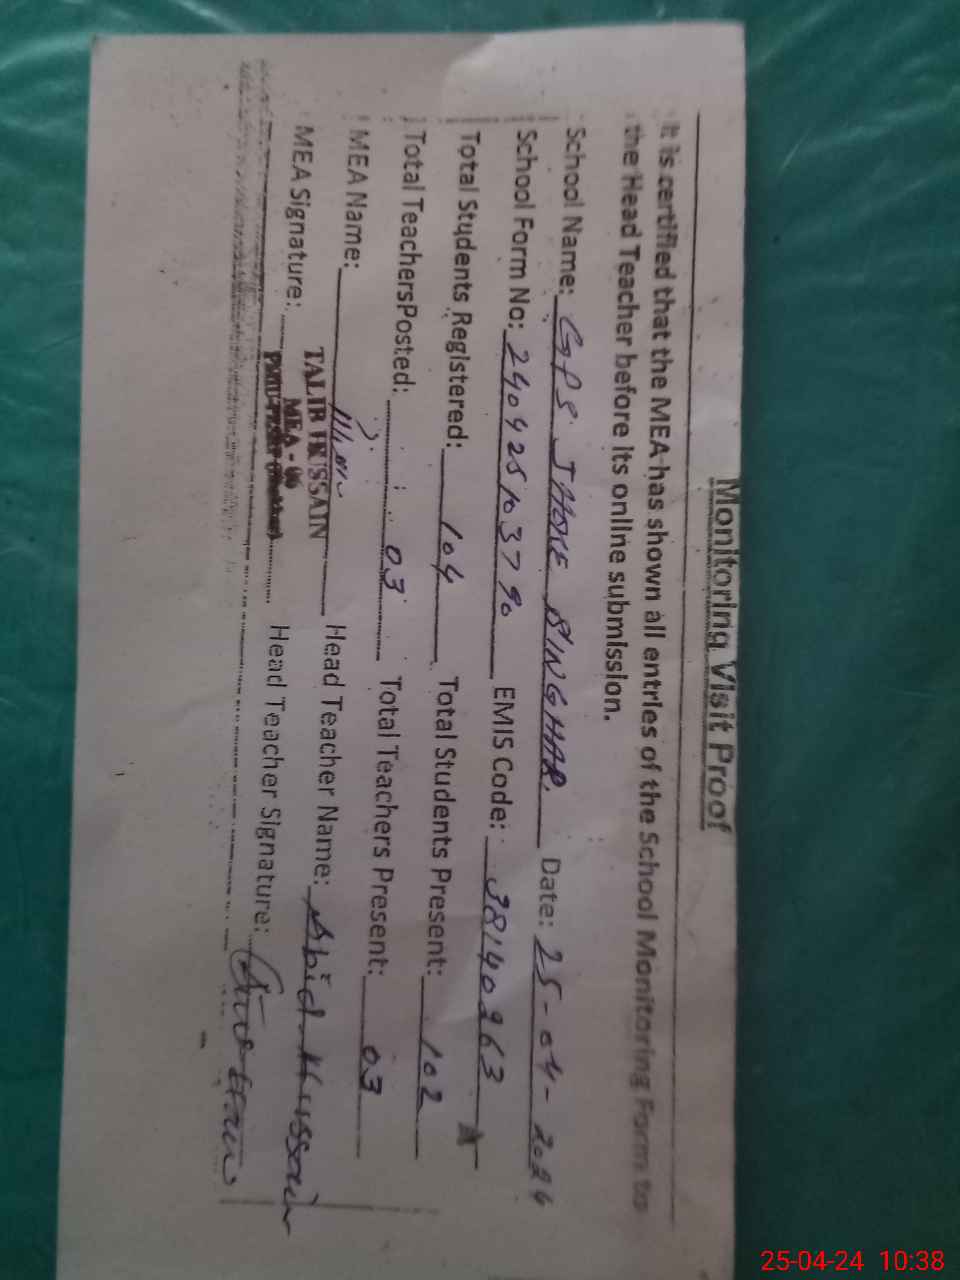 Monitoring Visit Proof
It is certified that the MEA has shown all entries of the School Monitoring Form to
the Head Teacher before its online submission.
School Name: GPS JHOKE SINGHAR. Date: 25-04-2024
School Form No: 240425103790 EMIS Code: 38140263
Total Students Registered: 104 Total Students Present: 102
Total TeachersPosted: 03 Total Teachers Present: 03
MEA Name: Head Teacher Name: Abid Hussain
TALIB HUSSAIN
MEA Signature: Head Teacher Signature:
MEA -
25-04-24 10:38